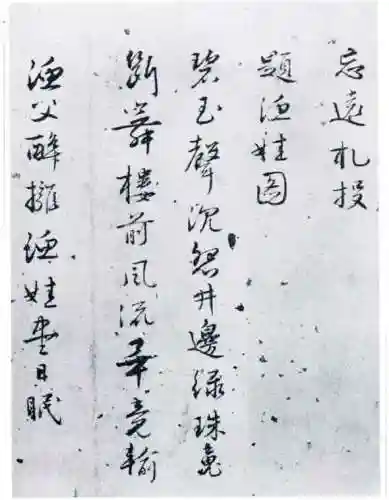 忘遠札投
題漁娃图
碧玉聲沉怨井邊綠珠魂
斷舞樓前風流畢竟輸
漁父醉擁漁娃盡日眠